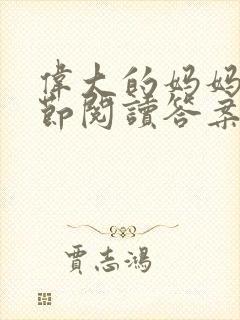 偉大的妈妈
節閱讀答案
賈志鴻